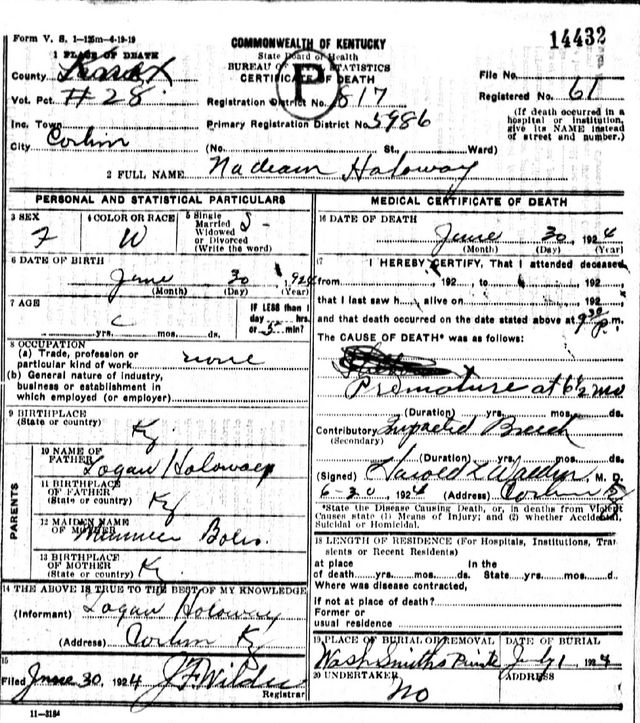 Form V. S. 1-125m-4-19-19
COMMONWEALTH OF KENTUCKY
State Board of Health
BUREAU OF STATISTICS
CERTIFICATE OF DEATH
P
14432
1 PLACE OF DEATH
County Knox
Vot. Pct. #28
Inc. Town
City Corbin
Registration District No. 817
Primary Registration District No. 5986
(No. St., Ward)
File No.
Registered No. 61
(If death occurred in a
hospital or institution,
give its NAME instead
of street and number.)
2 FULL NAME Nadeam Holoway
PERSONAL AND STATISTICAL PARTICULARS
3 SEX
F
4 COLOR OR RACE
W
5 Single
Married
Widowed
or Divorced
(Write the word)
S
6 DATE OF BIRTH
June 30, 1924
(Month) (Day) (Year)
7 AGE
yrs. mos. ds.
IF LESS than 1
day hrs.
or 5 min?
8 OCCUPATION
(a) Trade, profession or
particular kind of work none
(b) General nature of industry,
business or establishment in
which employed (or employer)
9 BIRTHPLACE
(State or country) Ky
PARENTS
10 NAME OF
FATHER Logan Holoway
11 BIRTHPLACE
OF FATHER
(State or country) Ky
12 MAIDEN NAME
OF MOTHER
13 BIRTHPLACE
OF MOTHER
(State or country) Ky
14 THE ABOVE IS TRUE TO THE BEST OF MY KNOWLEDGE
(Informant) Logan Holoway
(Address) Corbin Ky
15
Filed June 30, 1924 J F Wilder
Registrar
11-3184
MEDICAL CERTIFICATE OF DEATH
16 DATE OF DEATH
June 30, 1924
(Month) (Day) (Year)
17 I HEREBY CERTIFY, That I attended deceased
from , 192 to , 192
that I last saw h alive on , 192
and that death occurred on the date stated above at 9 30 P. m.
The CAUSE OF DEATH* was as follows:
Premature at 6 1/2 mo
(Duration) yrs. mos. ds.
Contributory Impacted Breech
(Secondary)
(Duration) yrs. mos. ds.
(Signed) Harold L M. D.
6-30, 1924 (Address) Corbin
*State the Disease Causing Death, or, in deaths from Violent
Causes state (1) Means of Injury; and (2) whether Accidental,
Suicidal or Homicidal.
18 LENGTH OF RESIDENCE (For Hospitals, Institutions, Tran
sients or Recent Residents)
at place In the
of death yrs. mos. ds. State yrs. mos. d
Where was disease contracted,
If not at place of death?
Former or
usual residence
19 PLACE OF BURIAL OR REMOVAL
Wash Smiths Private
DATE OF BURIAL
July 1 1924
20 UNDERTAKER
No
ADDRESS